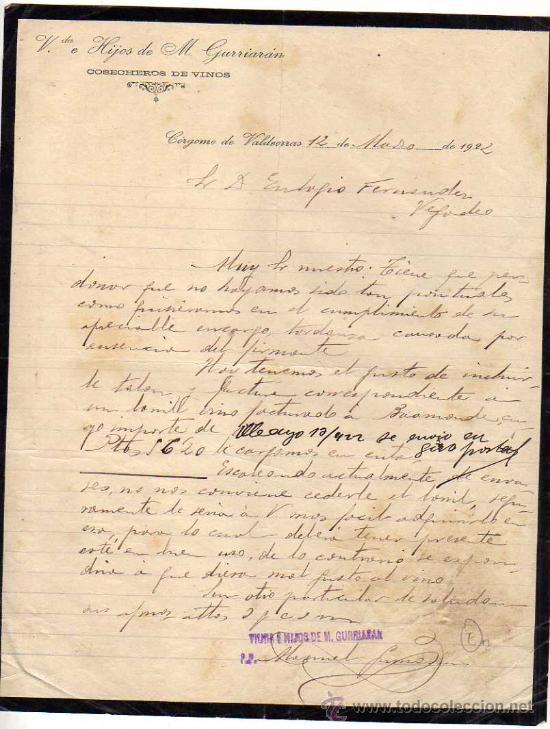 V.da e Hijos de M. Gurriarán
COSECHEROS DE VINOS
Córgomo de Valdeorras 12 de Marzo de 1922
Sr D. Eulogio Fernandez
Vegadeo
Muy Sr nuestro: Tiene que per-
donar que no hayamos sido tan puntuales
como quisieramos en el cumplimiento de su
apreciable encargo, tardanza causada por
ausencia del firmante.
Hoy tenemos el gusto de incluir-
le talon y factura correspondiente a
un bocoil vino facturado a Baamonde, cu-
yo importe de Mayo 13/922 se envio en
Ptas 56 20 le cargamos en cuenta giro postal
Escaseando actualmente de enva-
ses, no nos conviene cederle el bocoil, segu-
ramente le seria a V. mas facil adquirirlo en
esa, para lo cual debera tener presente
esté en buen uso, de lo contrario se expon-
dria á que diera mal gusto al vino
Sin otro particular le saludan
sus afmos attos
VIUDA E HIJOS DE M. GURRIARAN
P.P. Manuel Gurriarán
todocoleccion
© TODOCOLECCION.NET